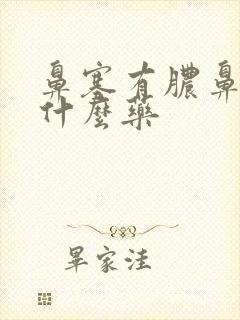 鼻塞有膿鼻
什麼藥
畢家洼